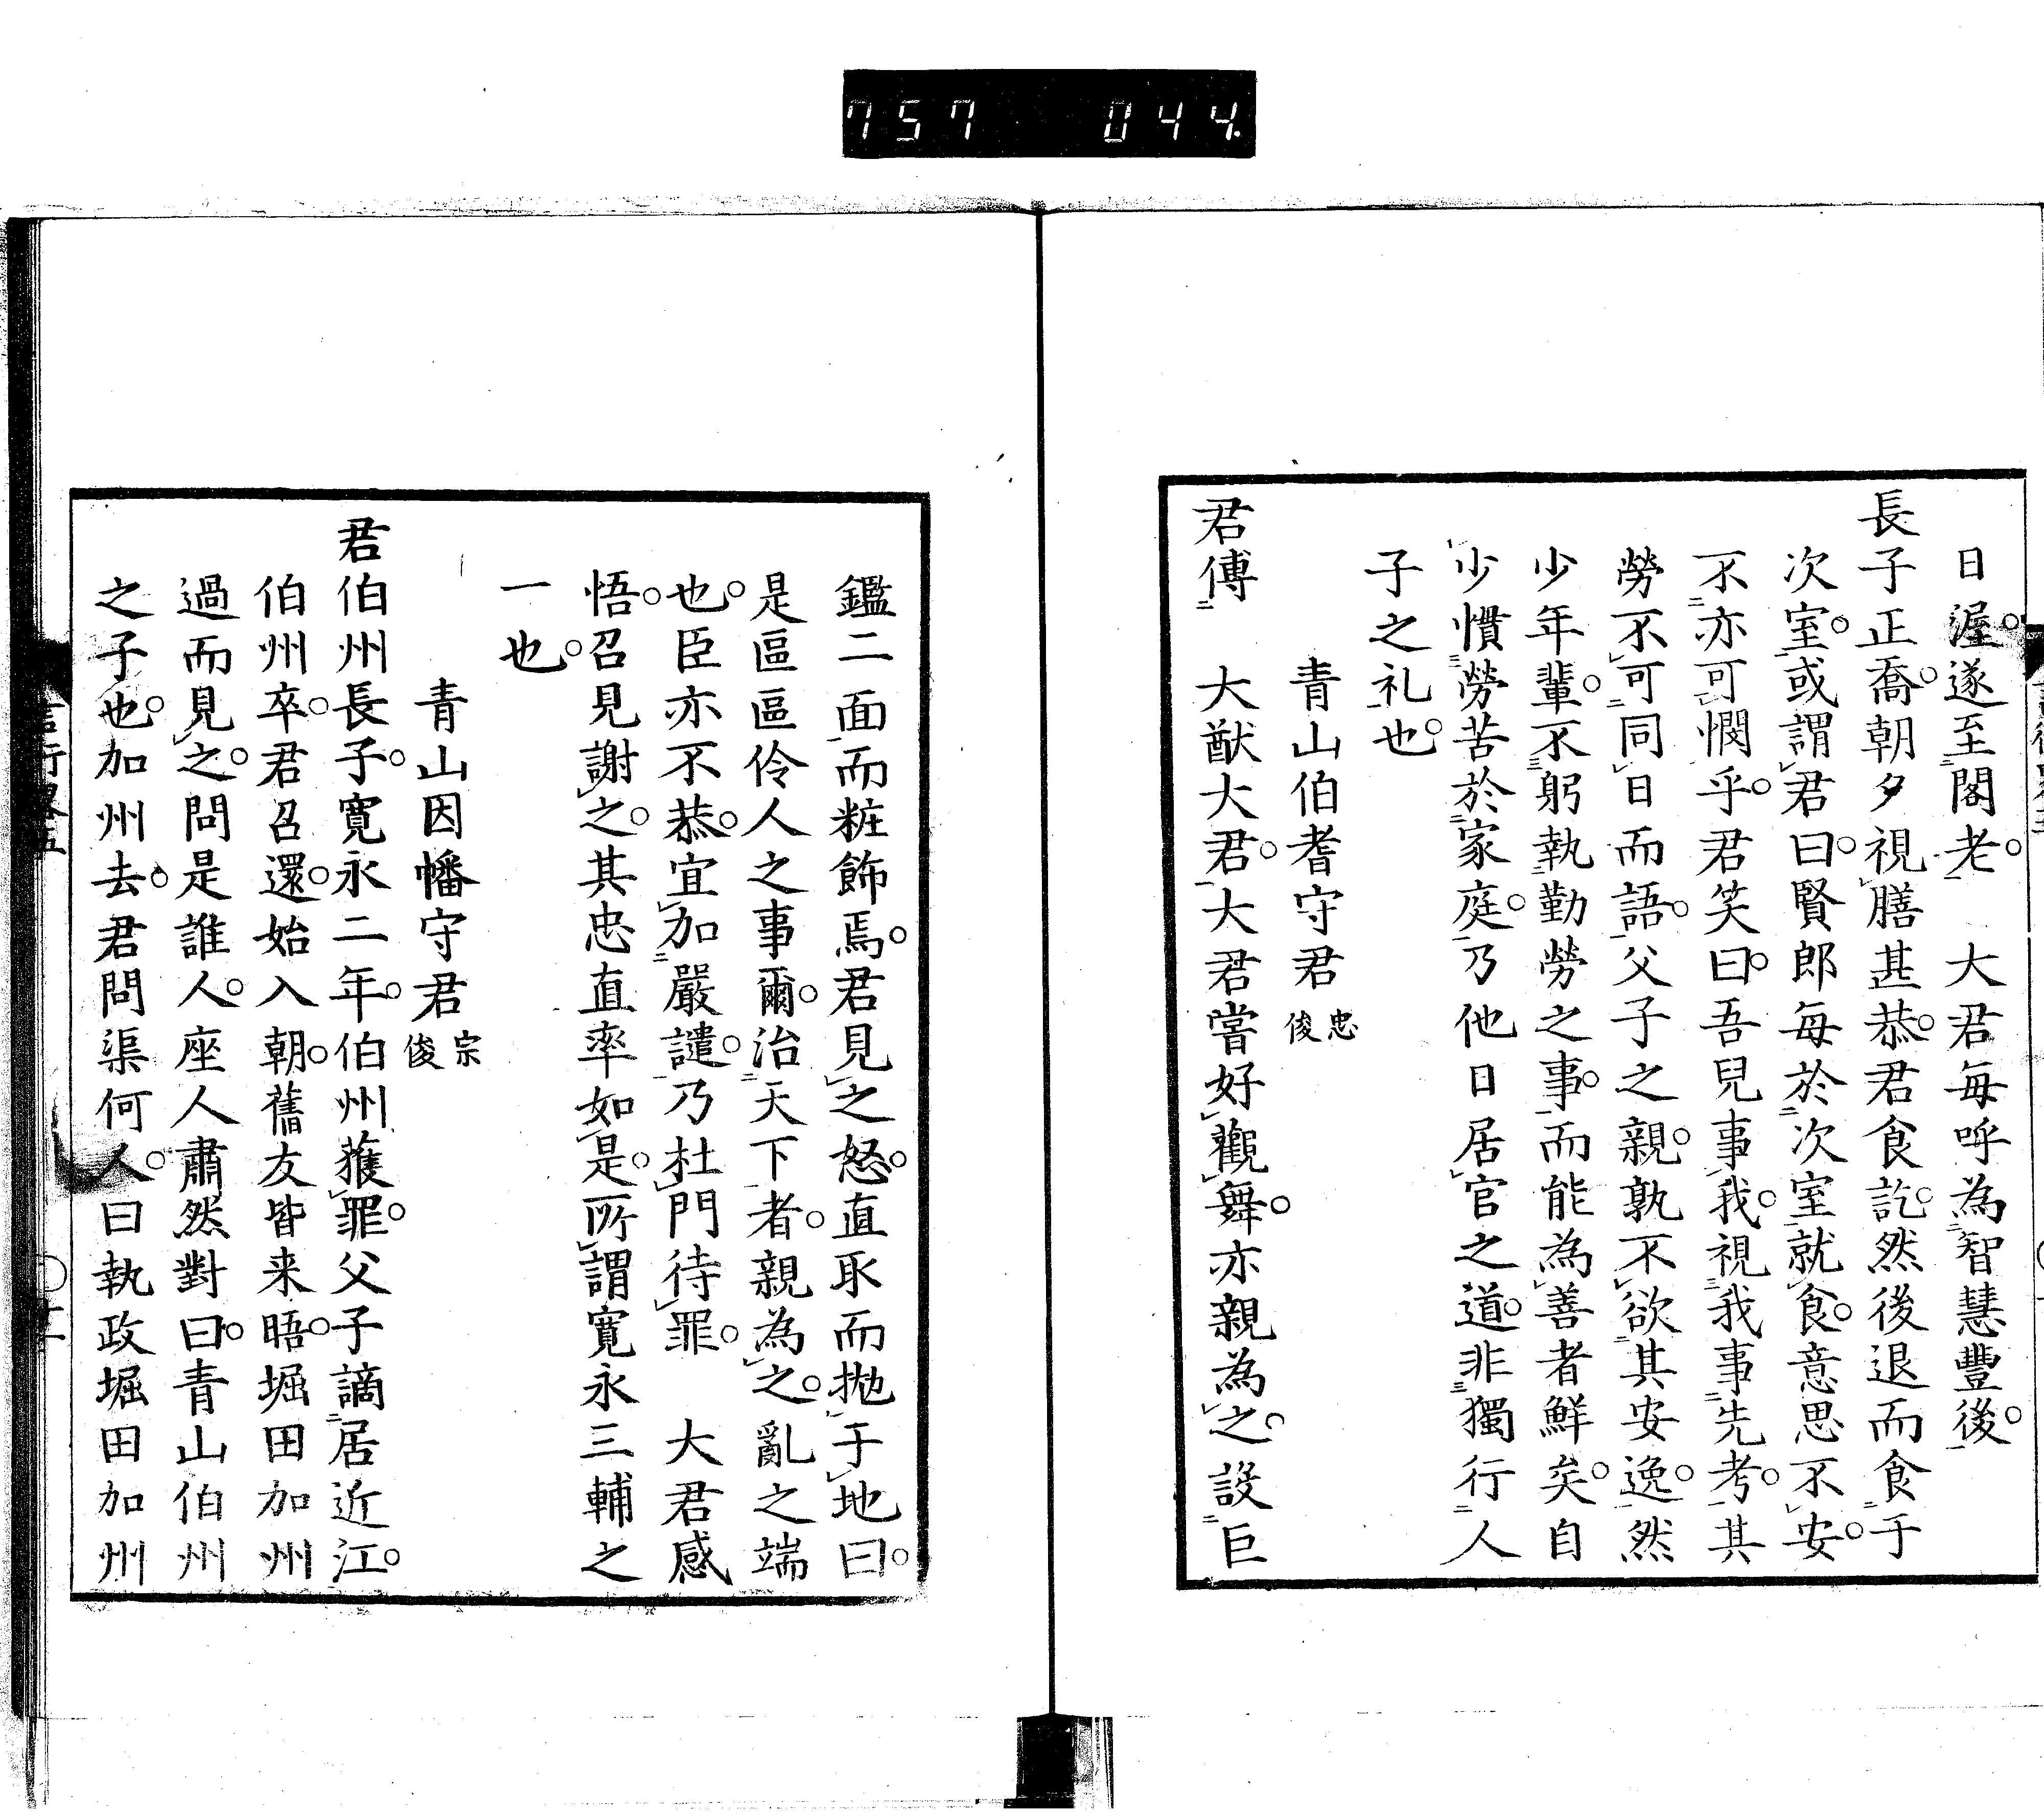 757 044
日渥遂至閣老　大君毎呼為智慧豐後
長子正喬朝夕視膳甚恭君食訖然後退而食于
次室或謂君曰賢郎毎於次室就食意思不安
不亦可憫乎君笑曰吾兒事我視我事先考其
勞不可同日而語父子之親孰不欲其安逸然
少年輩不躬執勤勞之事而能為善者鮮矣自
少慣勞苦於家庭乃他日居官之道非獨行人
子之礼也
青山伯耆守君忠俊
君傅　大猷大君大君嘗好觀舞亦親為之設巨
鑑二面而粧飾焉君見之怒直取而抛于地曰
是區區伶人之事爾治天下者親為之亂之端
也臣亦不恭宜加嚴譴乃杜門待罪　大君感
悟召見謝之其忠直率如是所謂寛永三輔之
一也
青山因幡守君宗俊
君伯州長子寛永二年伯州獲罪父子謫居近江
伯州卒君召還始入朝舊友皆来晤堀田加州
過而見之問是誰人座人肅然對曰青山伯州
之子也加州去君問渠何人曰執政堀田加州
言行畧五